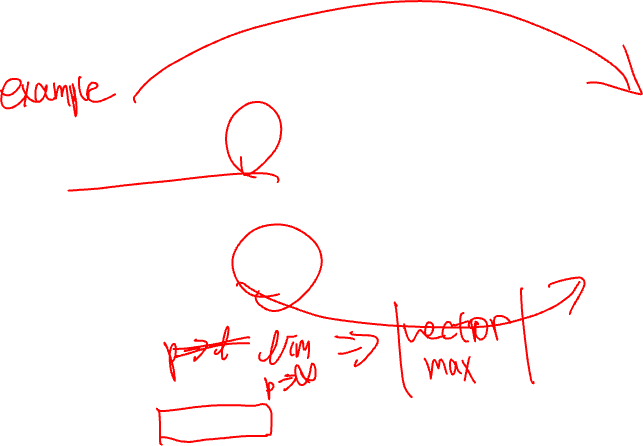 example
p→1 lim ⇒ |vector|
p→∞ max